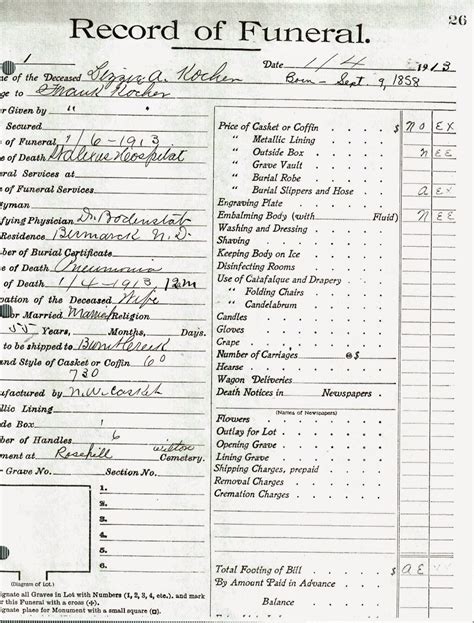 26
Record of Funeral.
1
Date 1/4 1913
me of the Deceased Lizzie A. Rocker
Born - Sept. 9, 1858
ge to Frank Rocker
er Given by " "
Secured
of Funeral 1/6-1913
e of Death St Alexius Hospital
eral Services at
of Funeral Services
yman
fying Physician D. Bodenstab
Residence Bismarck N.D.
ber of Burial Certificate
e of Death Pneumonia
of Death 1/4-1913
pation of the Deceased Wife
or Married Religion
55 Years, Months, Days.
to be shipped to
and Style of Casket or Coffin 6/0
730
ufactured by N.W. Casket
llic Lining
ide Box 1
ber of Handles 6
ment at Rosehill Wilton Cemetery.
Grave No. Section No.
1.
2.
3.
4.
5.
6.
(Diagram of Lot.)
ignate all Graves in Lot with Numbers (1, 2, 3, 4, etc.), and mark
r this Funeral with a cross (+).
ignate place for Monument with a small square (□)
Price of Casket or Coffin $ N O E X
" Metallic Lining
" Outside Box N E E
" Grave Vault
" Burial Robe
" Burial Slippers and Hose A E X
Engraving Plate
Embalming Body (with Fluid) N E E
Washing and Dressing
Shaving
Keeping Body on Ice
Disinfecting Rooms
Use of Catafalque and Drapery
" Folding Chairs
" Candelabrum
Candles
Gloves
Crape
Number of Carriages @ $
Hearse
Wagon Deliveries
Death Notices in Newspapers
(Names of Newspapers)
Flowers
Outlay for Lot
Opening Grave
Lining Grave
Shipping Charges, prepaid
Removal Charges
Cremation Charges
Total Footing of Bill $ A E
By Amount Paid in Advance
Balance